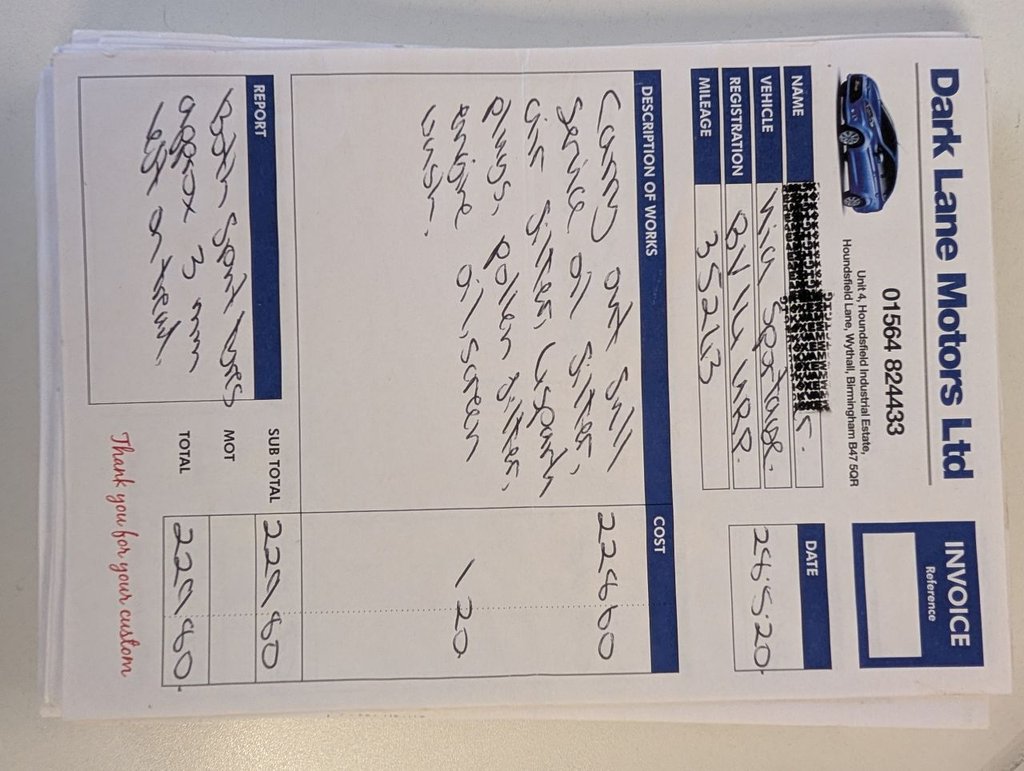 Dark Lane Motors Ltd
01564 824433
Unit 4, Houndsfield Industrial Estate,
Houndsfield Lane, Wythall, Birmingham B47 5QR
INVOICE
Reference
NAME
VEHICLE Kia Sportage.
REGISTRATION
MILEAGE 35263
DATE
28.5.20
DESCRIPTION OF WORKS
COST
Carry out full 228 60
Service oil filter,
air filter, 4 spark
plugs, pollen filter,
engine oil, screen 1 20
wash.
REPORT
Both front tyres
approx 3 mm
left on tread.
SUB TOTAL 229,80
MOT
TOTAL 229,80
Thank you for your custom